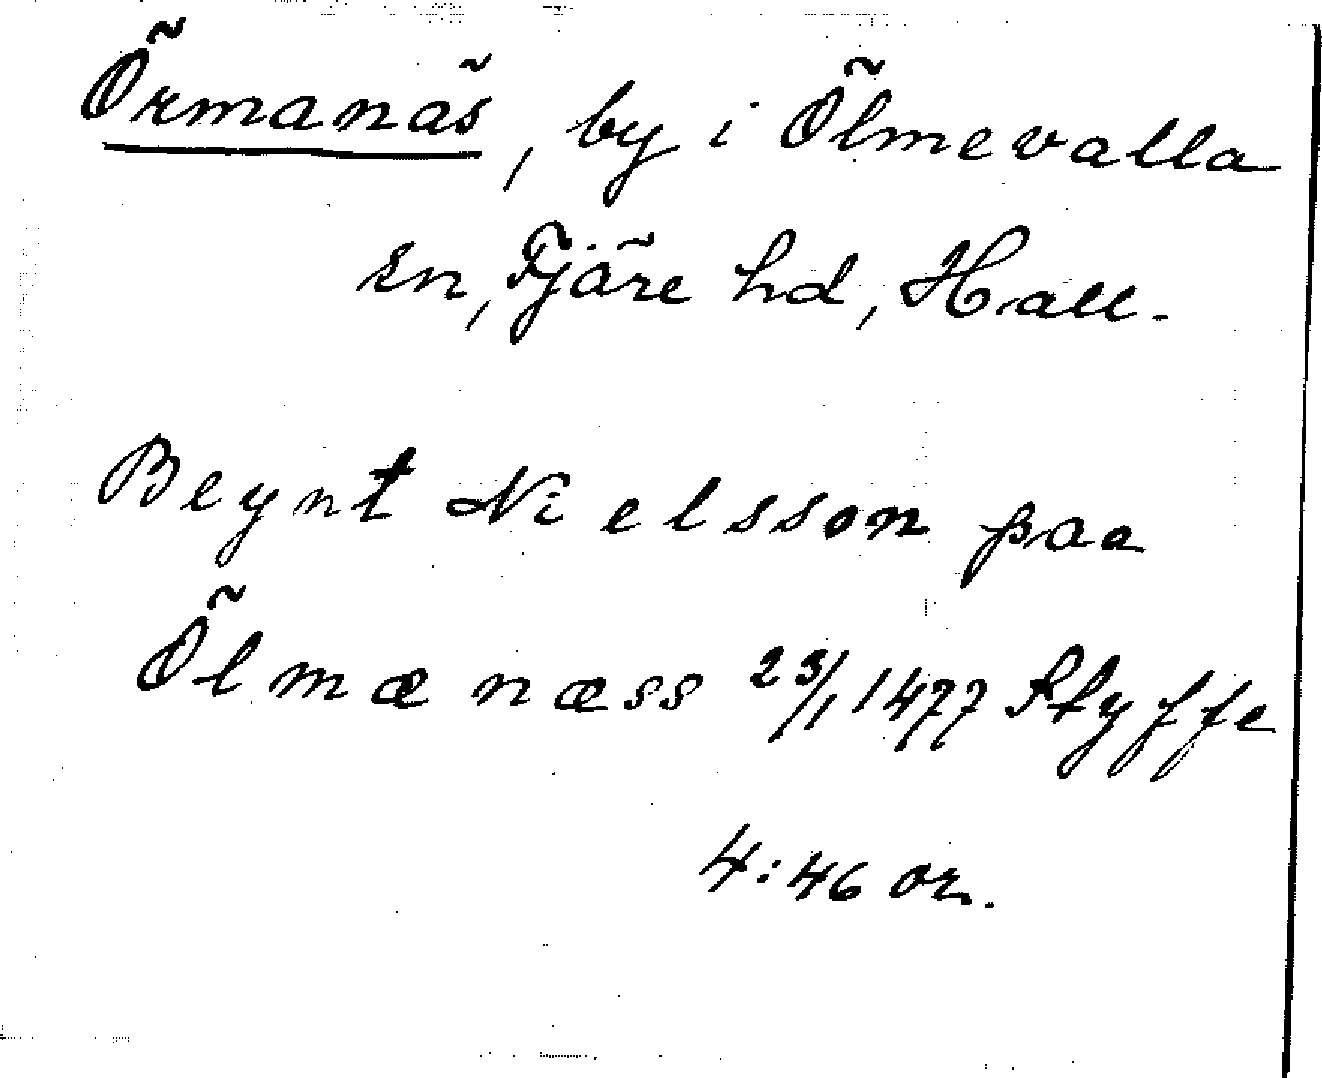 Örmanäs, by i Ölmevalla
sn, Fjäre hd, Hall.
Beynt Nielsson paa
Ölmænæss 23/1 1477 Styffe
4:46 or.